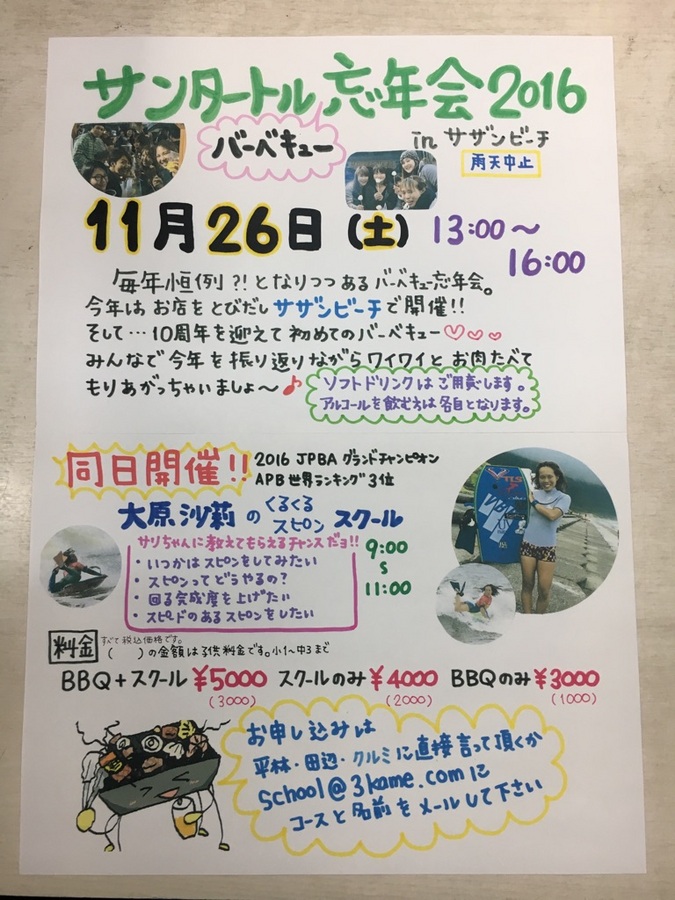 サンタートル忘年会2016
バーベキュー
in サザンビーチ
雨天中止
11月26日(土) 13:00～
16:00
毎年恒例?!となりつつあるバーベキュー忘年会。
今年はお店をとびだしサザンビーチで開催!!
そして…10周年を迎えて初めてのバーベキュー♡♡♡
みんなで今年を振り返りながらワイワイとお肉たべて
もりあがっちゃいましょ～♪
ソフトドリンクはご用意します。
アルコールを飲む方は各自となります。
同日開催!!
2016 JPBA グランドチャンピオン
APB世界ランキング3位
大原沙莉のくるくるスピンスクール
サリちゃんに教えてもらえるチャンスだョ!!
・いつかはスピンをしてみたい
・スピンってどうやるの?
・回る完成度を上げたい
・スピドのあるスピンをしたい
9:00
S
11:00
料金
すべて税込価格です。
( )の金額は子供料金です。小1～中3まで
BBQ+スクール ¥5000 スクールのみ ¥4000 BBQのみ ¥3000
(3000) (2000) (1000)
お申し込みは
平林・田辺・クルミに直接言って頂くか
school@3kame.comに
コースと名前をメールして下さい